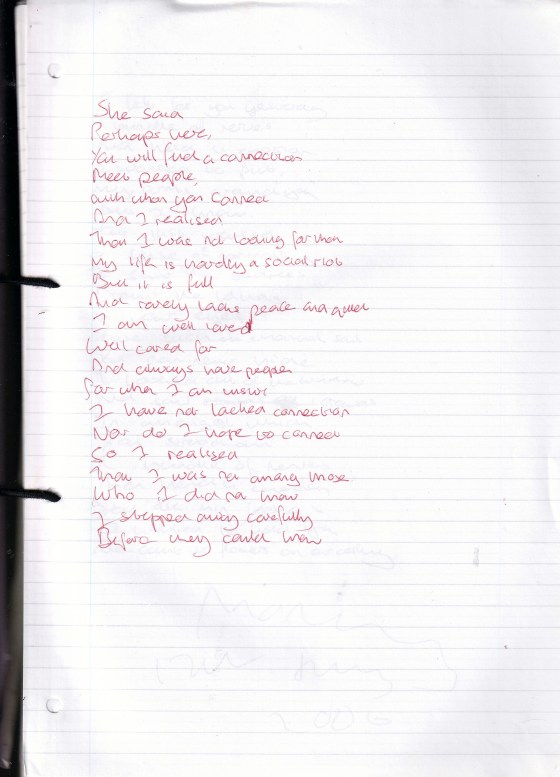 She said
Perhaps here,
You will find a connection
Meet people,
with whom you connect
And I realised
That I was not looking for them
My life is hardly a social riot
But it is full
And rarely lacks peace and quiet
I am well loved
Well cared for
And always have people
for whom I am
I have not lacked connection
Nor do I hope to connect
So I realised
That I was not among those
Who I did not know
I stepped away carefully
Before they could know
2006